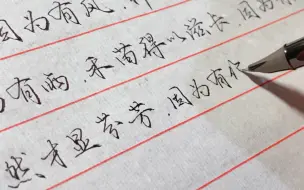 因为有风
有雨.禾苗得以滋长.因为有
然才显芬芳.因为有你